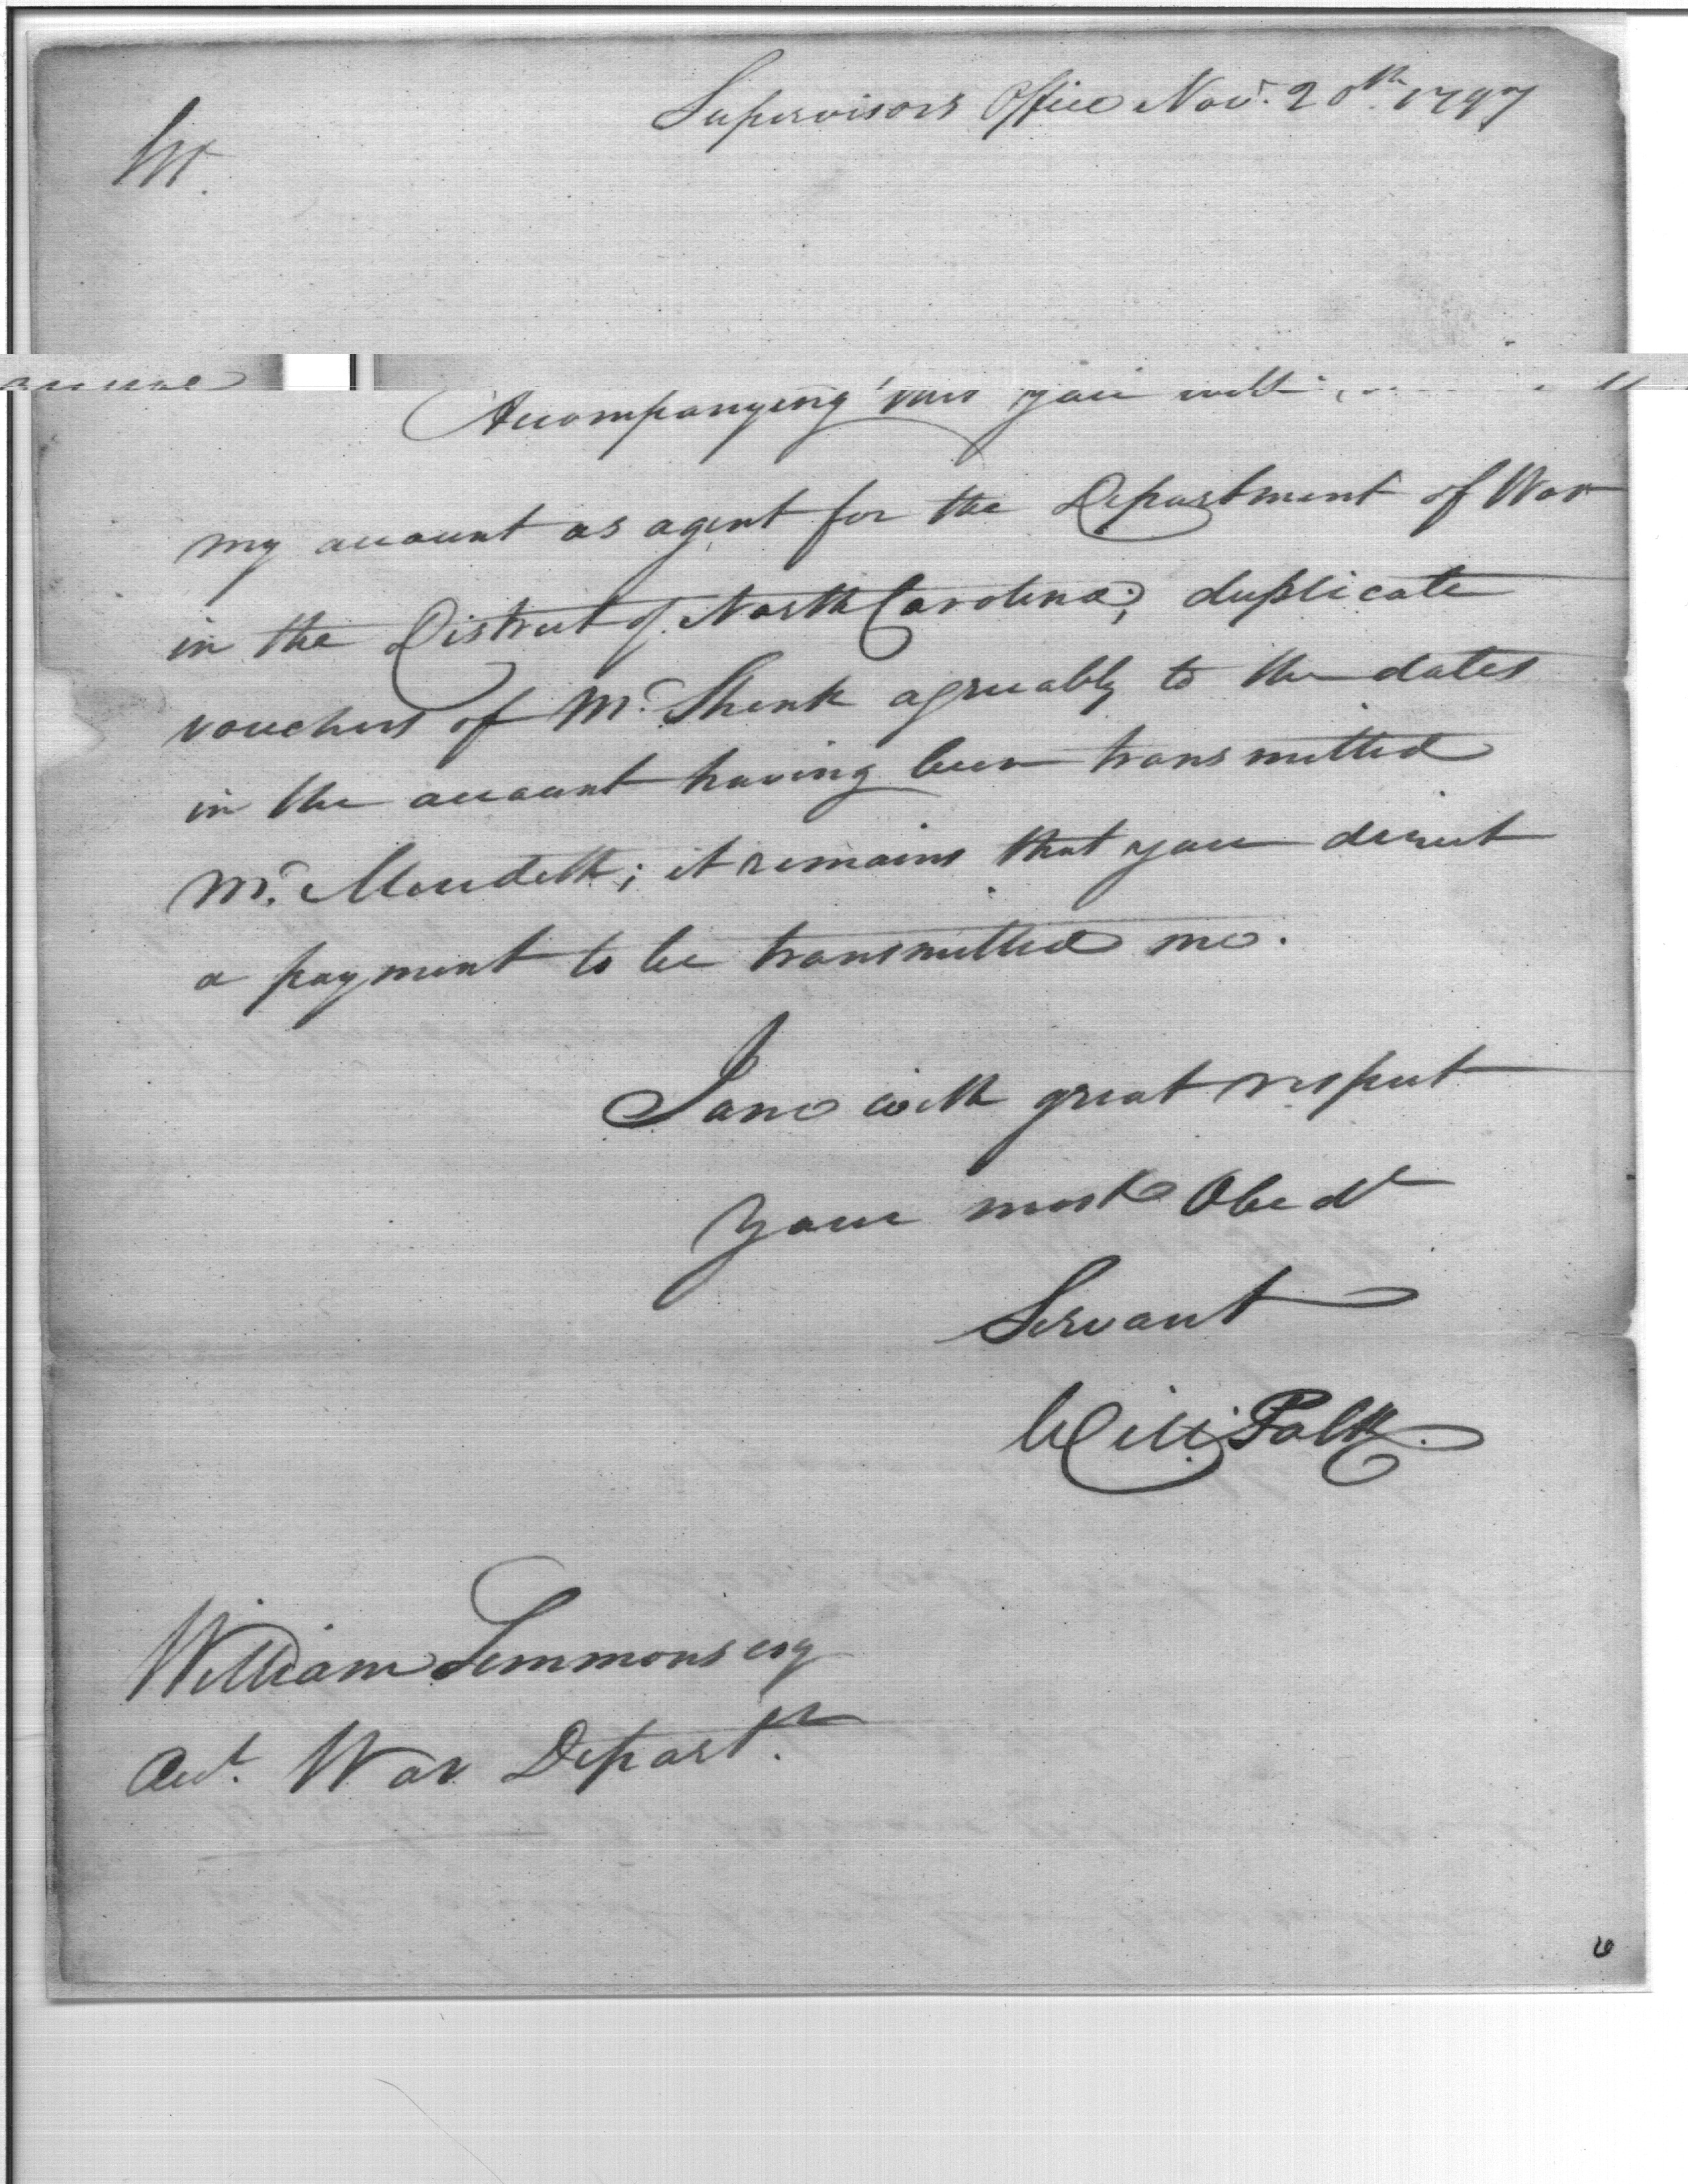 Supervisors Office Nov.r 20th. 1797
Sir.
Accompanying this you will
my account as agent for the Department of War
in the District of North Carolina; duplicate
vouchers of Mr. Shenk agreeably to the dates
in the account having been transmitted
Mr. ; it remains that you direct
a payment to be transmitted me.
I am with great respect
Your most Obedt
Servant
Will: Polk.
William Simmons esq
Acct. War Depart.
6